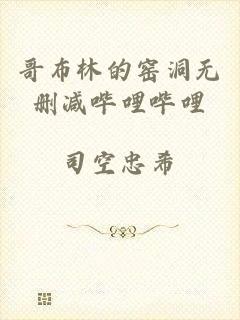 哥布林的窑洞无
删减哔哩哔哩
司空忠希